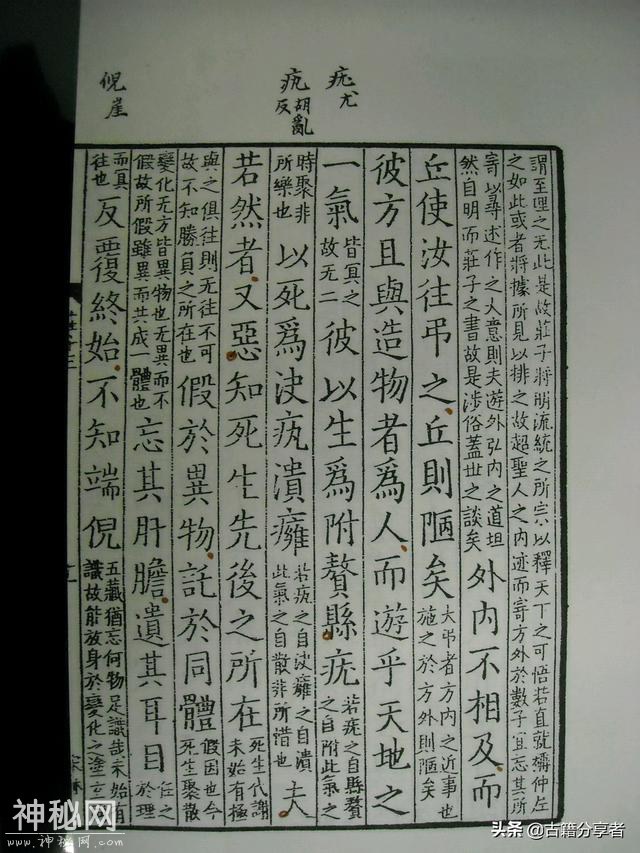 疣尤
𤴯胡亂反
倪崖
謂至理之无此是故莊子將明流統之所宗以釋天下之可悟若直就稱仲尼
之如此或者將據所見以排之故超聖人之内迹而寄方外於數子宜忘其所
寄以尋述作之大意則夫遊外弘内之道坦然自明而莊子之書故是涉俗蓋世之談矣外内不相及而
丘使汝往弔之丘則陋矣夫弔者方内之近事也施之於方外則陋矣
彼方且與造物者爲人而遊乎天地之
一氣皆冥之故无二彼以生爲附贅縣疣若疣之自縣贅之自附此氣之
時聚非所樂也以死爲決𤴯潰癰若𤴯之自決癰之自潰此氣之自散非所惜也夫
若然者又惡知死生先後之所在死生代謝未始有極
與之俱往則无往不可故不知勝負之所在也假於異物託於同體假因也今死生聚散
變化无方皆異物也无異而不假故所假雖異而共成一體也忘其肝膽遺其耳目任之於理
而冥往也反覆終始不知端倪五藏猶忘何物足識哉未始有識故能放身於變化之塗玄
神秘网
www.神秘网.com
头条 @古籍分享者